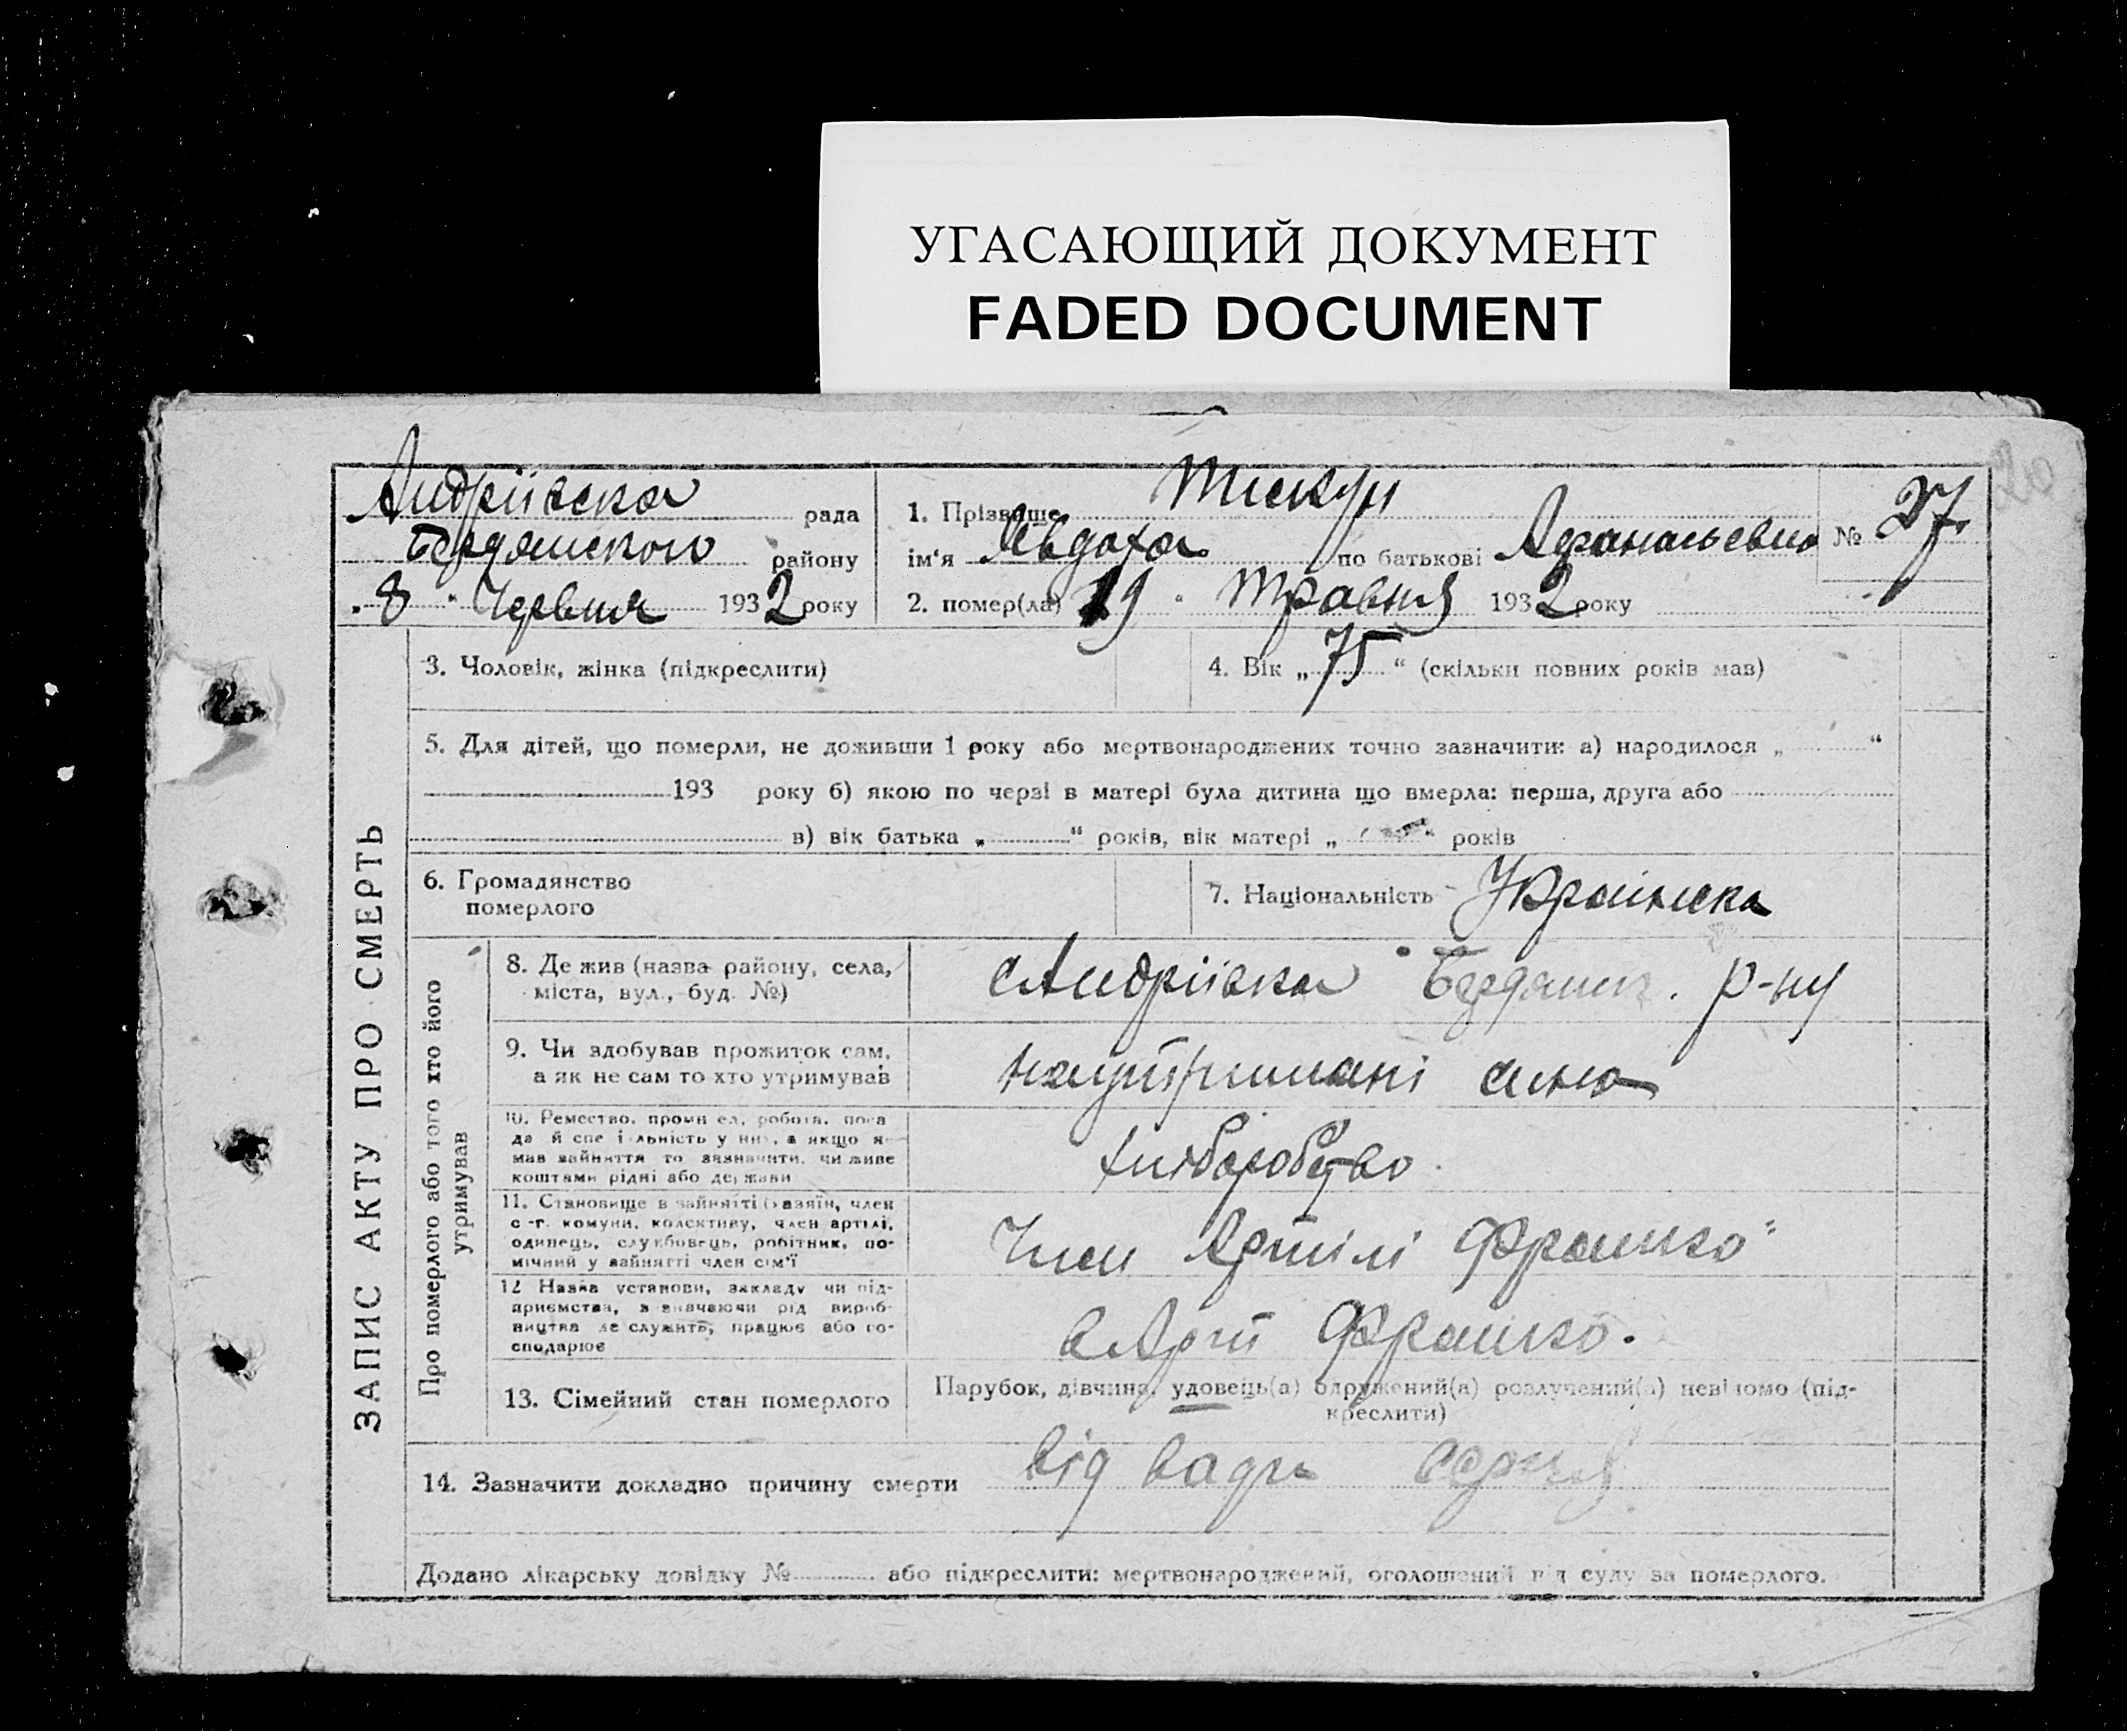 УГАСАЮЩИЙ ДОКУМЕНТ
FADED DOCUMENT
20
Андріівска рада
Бердянського району
"8" Червня 1932 року
1. Прізвище Тискун
ім'я Явдоха по батькові Афанасьевна
№ 27
2. помер(ла) 19 " Травня 1932 року
ЗАПИС АКТУ ПРО СМЕРТЬ
3. Чоловік, жінка (підкреслити)
4. Вік „ 75 “ (скільки повних років мав)
5. Для дітей, що померли, не доживши 1 року або мертвонароджених точно зазначити: а) народилося „ “
193 року б) якою по черзі в матері була дитина що вмерла: перша, друга або
в) вік батька „ “ років, вік матері „ “ років
6. Громадянство
померлого
7. Національність Украінска
Про померлого або того хто його
утримував
8. Де жив (назва району, села,
міста, вул., буд. №)
с Андріівка Бердянск. р-ну
9. Чи здобував прожиток сам,
а як не сам то хто утримував
наутримані сина
10. Ремество, промисел, робота, поса
да й спеціяльність у ній, а якщо не
мав зайняття то зазначити, чи живе
коштами рідні або держави
хліборобство
11. Становище в зайнятті (хазяїн, член
с.-г. комуни, колективу, член артілі,
одинець, службовець, робітник, по-
мічний у зайнятті член сім'ї
Член Артілі Франко"
12 Назва установи, закладу чи під-
приємства, зазначаючи рід вироб-
ництва де служить, працює або го-
сподарює
в Арт Франко.
13. Сімейний стан померлого
Парубок, дівчина, удовець(а) одружений(а) розлучений(а) невідомо (під-
креслити)
14. Зазначити докладно причину смерти від вади серця
Додано лікарську довідку № або підкреслити: мертвонароджений, оголошений від суду за померлого.